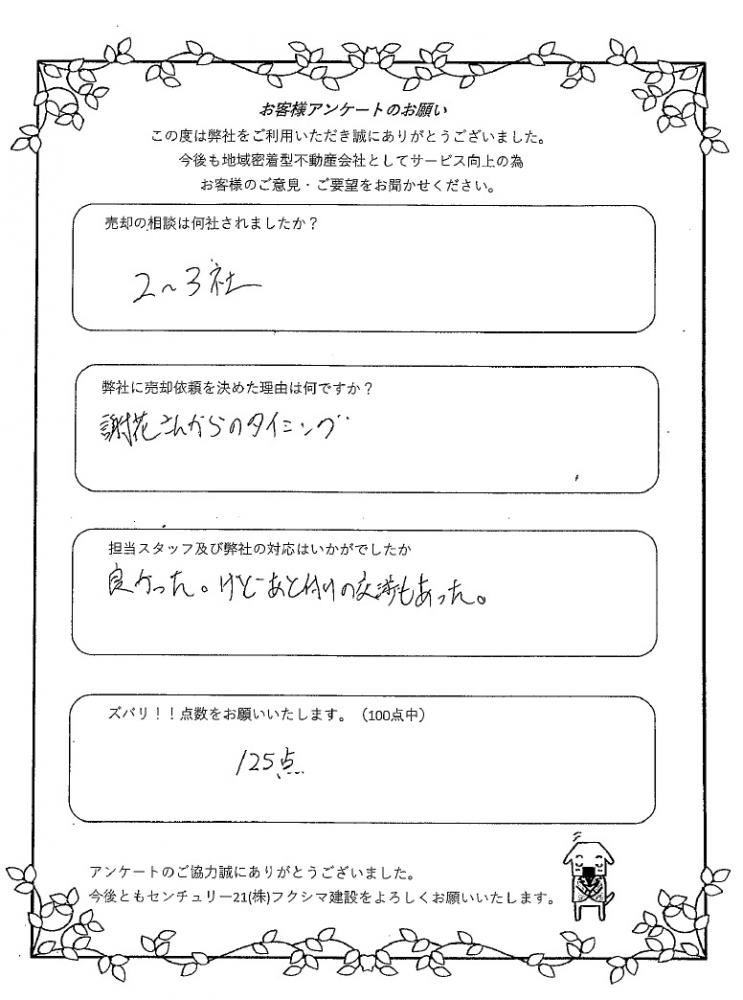 お客様アンケートのお願い
この度は弊社をご利用いただき誠にありがとうございました。
今後も地域密着型不動産会社としてサービス向上の為
お客様のご意見・ご要望をお聞かせください。
売却の相談は何社されましたか？
2～3社
弊社に売却依頼を決めた理由は何ですか？
謝花さんからのタイミング
担当スタッフ及び弊社の対応はいかがでしたか
良かった。けどあと付けの交渉もあった。
ズバリ！！点数をお願いいたします。（100点中）
125点
アンケートのご協力誠にありがとうございました。
今後ともセンチュリー21(株)フクシマ建設をよろしくお願いいたします。